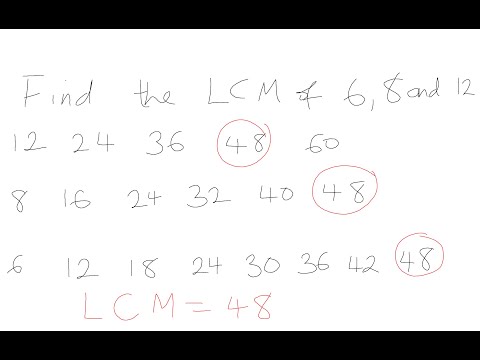 Find the LCM of 6, 8 and 12
12 24 36 48 60
8 16 24 32 40 48
6 12 18 24 30 36 42 48
LCM = 48